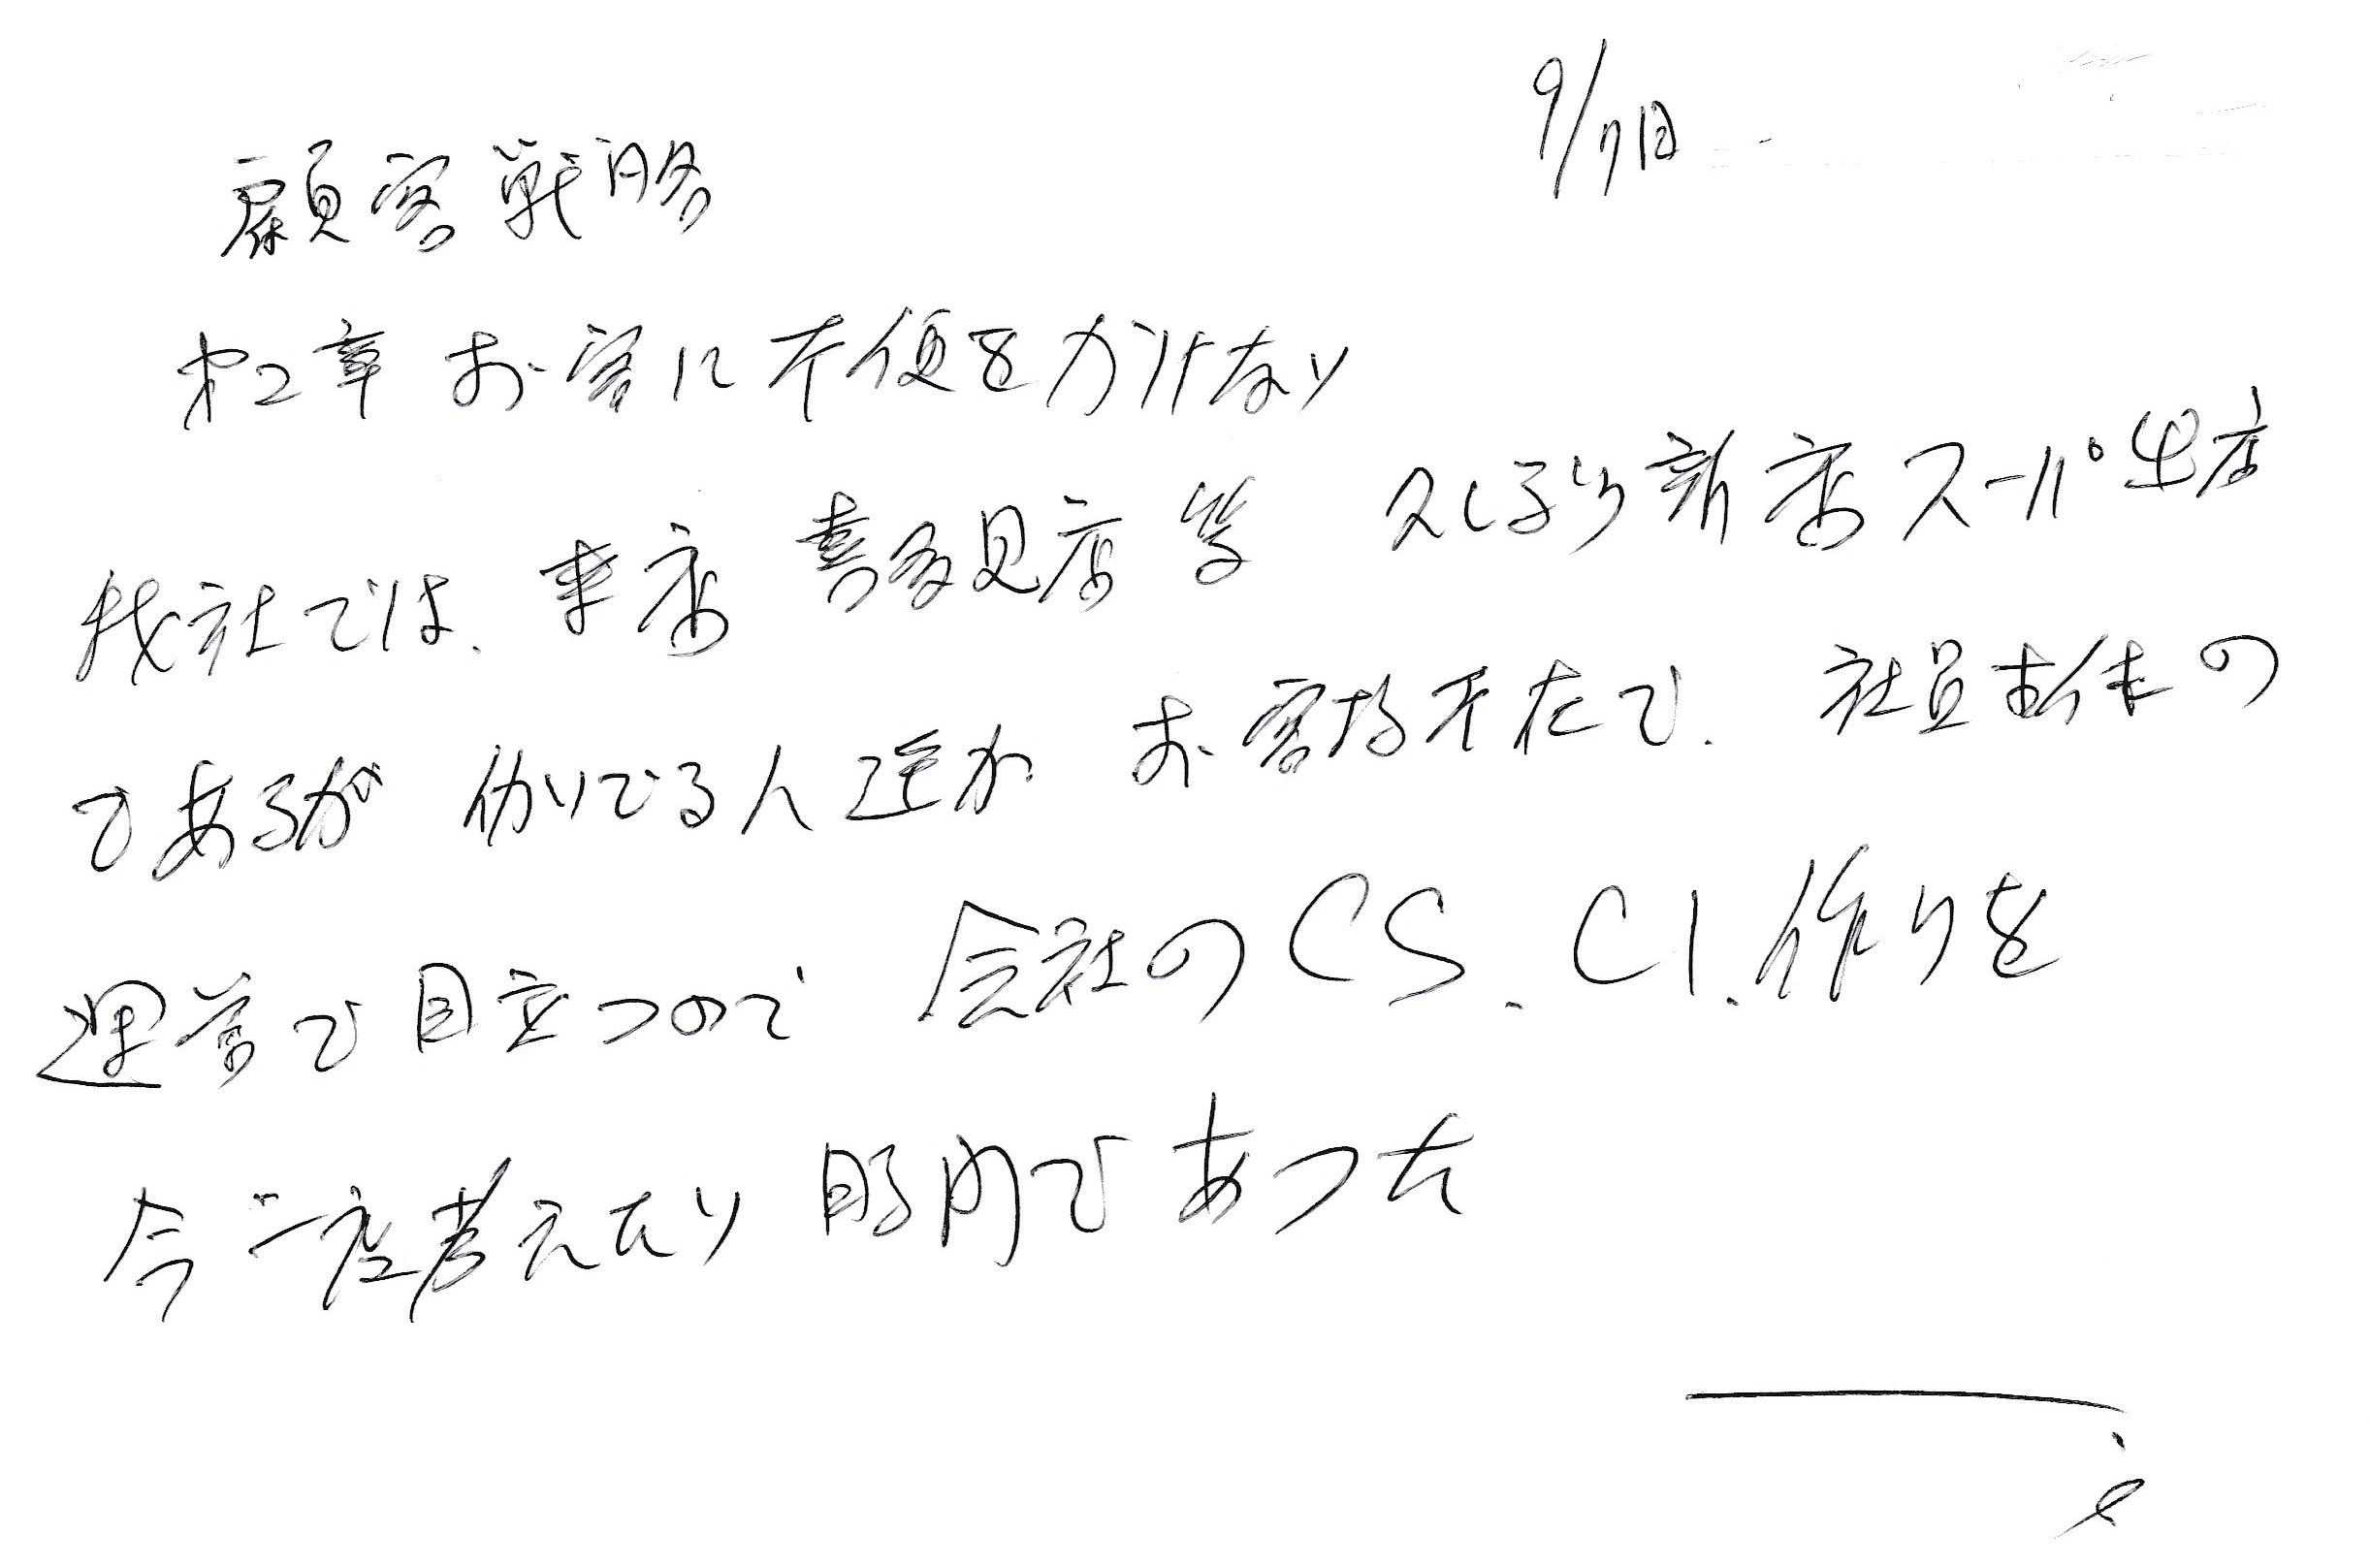 9/7日
顧客戦略
第2章 お客に不便をかけない
我社では、来店 喜多見店等 久し ぶり新店スーパー出店
であるが 働いてる人達が お客様不在で、社員主体の
運営で目立つので 会社のCS、CI、作りを
今一度考えたい 時間であった